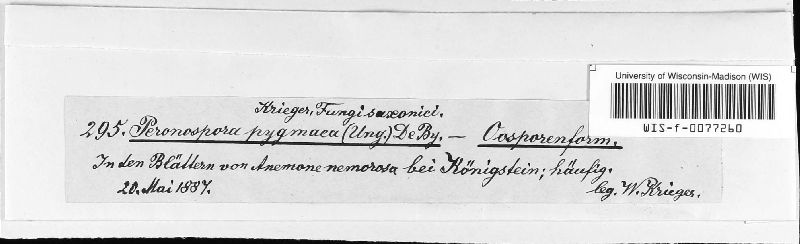 University of Wisconsin-Madison (WIS)
WIS-f-0077260
Krieger, Fungi saxonici.
295. Peronospora pygmaea (Ung.) De By. — Oosporenform.
In den Blättern von Anemone nemorosa bei Königstein; häufig.
20. Mai 1887. leg. W. Krieger.